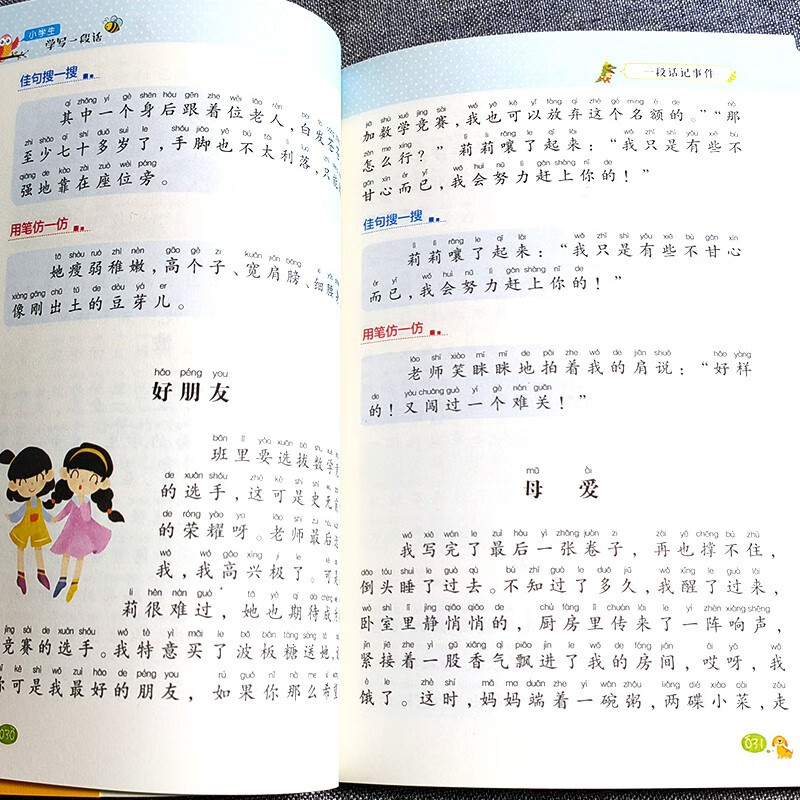 小学生
学写一段话
佳句搜一搜
qí zhōng yí gè shēn hòu gēn zhe wèi lǎo rén
其中一个身后跟着位老人，白发苍苍
zhì shǎo qī shí duō suì le shǒu jiǎo yě bú tài lì luo
至少七十多岁了，手脚也不太利落，只能
qiáng de kào zài zuò wèi páng
强地靠在座位旁。
用笔仿一仿
tā shòu ruò zhì nèn gāo gè zi kuān jiān bǎng
她瘦弱稚嫩，高个子、宽肩膀、细胳
xiàng gāng chū tǔ de dòu yá er
像刚出土的豆芽儿。
hǎo péng you
好朋友
bān lǐ yào xuǎn bá shù xué
班里要选拔数学竞
de xuǎn shǒu
的选手，这可是史无前
de róng yào ya
的荣耀呀。老师最后选
wǒ wǒ gāo xìng jí le
我，我高兴极了。可是
lì hěn nán guò
莉很难过，她也期待成
jìng sài de xuǎn shǒu wǒ tè yì mǎi le bō bàn táng sòng tā
竞赛的选手。我特意买了波板糖送她，
kě shì wǒ zuì hǎo de péng you rú guǒ nǐ nà me
你可是我最好的朋友，如果你那么希望
030
一段话记事件
jiā shù xué jìng sài wǒ yě kě yǐ fàng qì zhè ge míng é de nà
加数学竞赛，我也可以放弃这个名额的。”“那
zěn me xíng lì li rǎng le qǐ lái wǒ zhǐ shì yǒu xiē bù
怎么行？”莉莉嚷了起来：“我只是有些不
gān xīn ér yǐ wǒ huì nǔ lì gǎn shàng nǐ de
甘心而已，我会努力赶上你的！”
佳句搜一搜
lì li rǎng le qǐ lái wǒ zhǐ shì yǒu xiē bù gān xīn
莉莉嚷了起来：“我只是有些不甘心
ér yǐ wǒ huì nǔ lì gǎn shàng nǐ de
而已，我会努力赶上你的！”
用笔仿一仿
lǎo shī xiào mī mī de pāi zhe wǒ de jiān shuō hǎo yàng
老师笑眯眯地拍着我的肩说：“好样
de yòu chuǎng guò yí gè nán guān
的！又闯过一个难关！”
mǔ ài
母爱
wǒ xiě wán le zuì hòu yì zhāng juàn zi zài yě chēng bú zhù
我写完了最后一张卷子，再也撑不住，
dǎo tóu shuì le guò qù bù zhī guò le duō jiǔ wǒ xǐng le guò lái
倒头睡了过去。不知过了多久，我醒了过来，
wò shì lǐ jìng qiāo qiāo de chú fáng lǐ chuán lái le yí zhèn xiǎng shēng
卧室里静悄悄的，厨房里传来了一阵响声，
jǐn jiē zhe yì gǔ xiāng qì piāo jìn le wǒ de fáng jiān āi yā wǒ
紧接着一股香气飘进了我的房间，哎呀，我
è le zhè shí mā ma duān zhe yì wǎn zhōu liǎng dié xiǎo cài zǒu
饿了。这时，妈妈端着一碗粥，两碟小菜，走
031